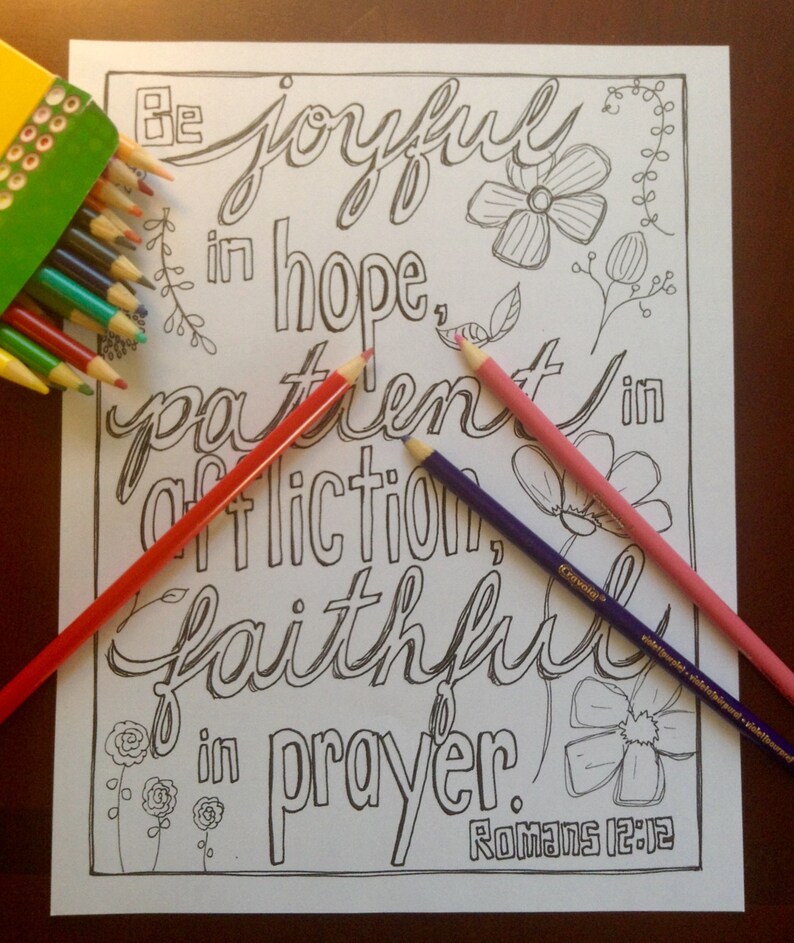 Be joyful
in hope,
patient in
affliction,
faithful
in prayer.
Romans 12:12
Crayola
violet/purple • violeta/púrpura • violet/pourpre